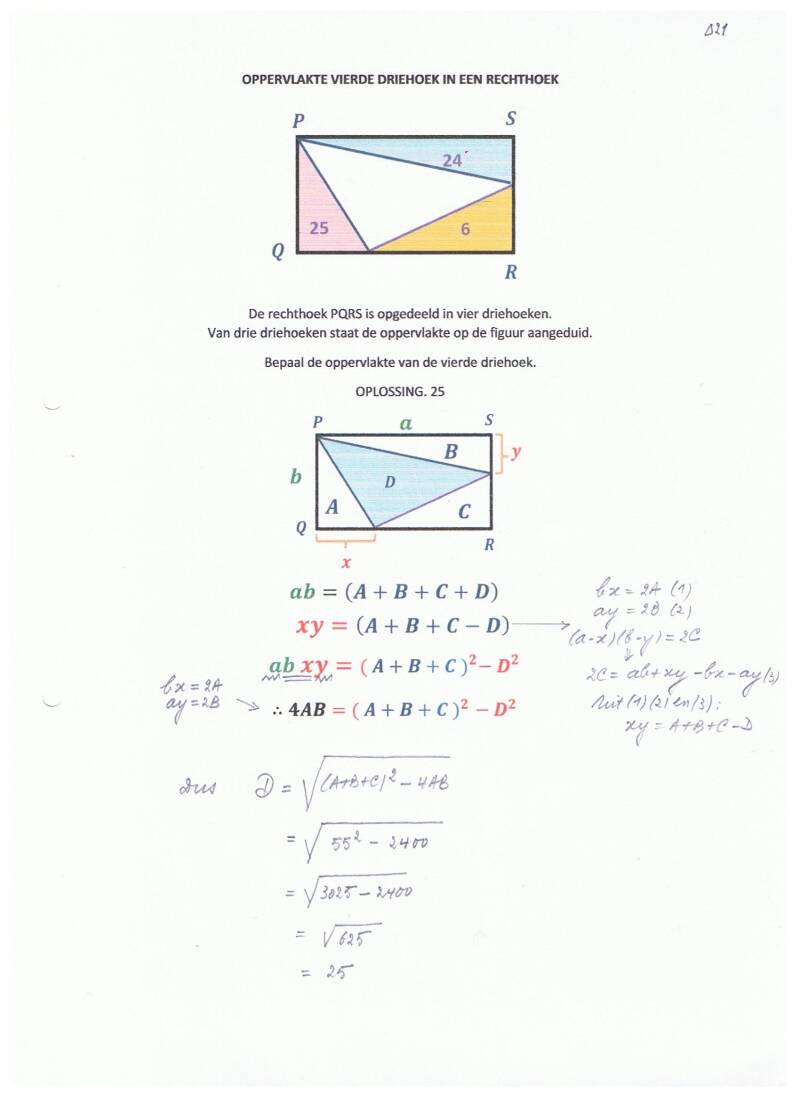 Δ21
OPPERVLAKTE VIERDE DRIEHOEK IN EEN RECHTHOEK
P S
24
25 6
Q
R
De rechthoek PQRS is opgedeeld in vier driehoeken.
Van drie driehoeken staat de oppervlakte op de figuur aangeduid.
Bepaal de oppervlakte van de vierde driehoek.
OPLOSSING. 25
P a S
B y
b D
A C
Q
R
x
ab = (A + B + C + D)
xy = (A + B + C − D)
ab xy = ( A + B + C )² − D²
∴ 4AB = ( A + B + C )² − D²
bx = 2A (1)
ay = 2B (2)
(a-x)(b-y) = 2C
2C = ab + xy - bx - ay (3)
Uit (1) (2) en (3):
xy = A+B+C-D
bx = 2A
ay = 2B
dus D = √(A+B+C)² - 4AB
= √55² - 2400
= √3025 - 2400
= √625
= 25